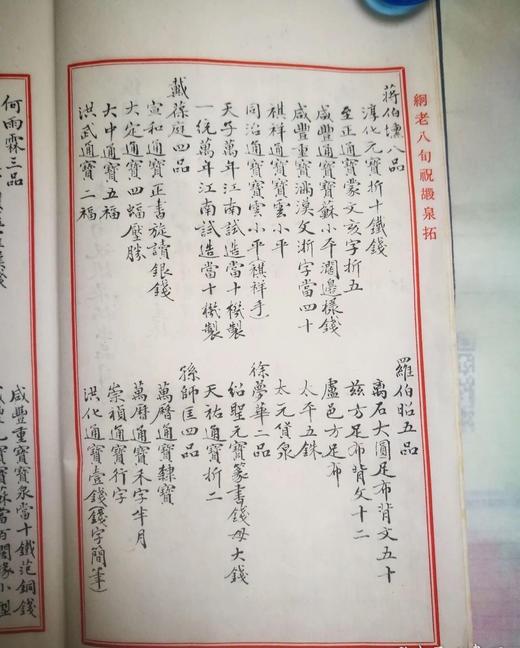 綱老八旬祝嘏泉拓
蔣伯壎八品
淳化元寶折十鐵錢
至正通寶蒙文亥字折五
咸豐通寶寶蘇小平濶邊樣錢
咸豐重寶滿漢文浙字當四十
祺祥通寶寶雲小平
同治通寶寶雲小平（祺祥手）
天子萬年江南試造當十機製
一統萬年江南試造當十機製
戴葆庭四品
宣和通寶正書旋讀銀錢
大定通寶四蝠壓勝
大中通寶五福
洪武通寶二福
羅伯昭五品
离石大圓足布背文五十
兹方足布背文十二
盧邑方足布
太平五銖
太元貨泉
徐夢華二品
紹聖元寶篆書錢母大錢
天祐通寶折二
孫師匡四品
萬曆通寶隸寶
萬曆通寶禾字半月
崇禎通寶行字
洪化通寶壹錢（錢字簡筆）
何雨霖三品
咸豐重寶寶泉當十鐵范銅錢